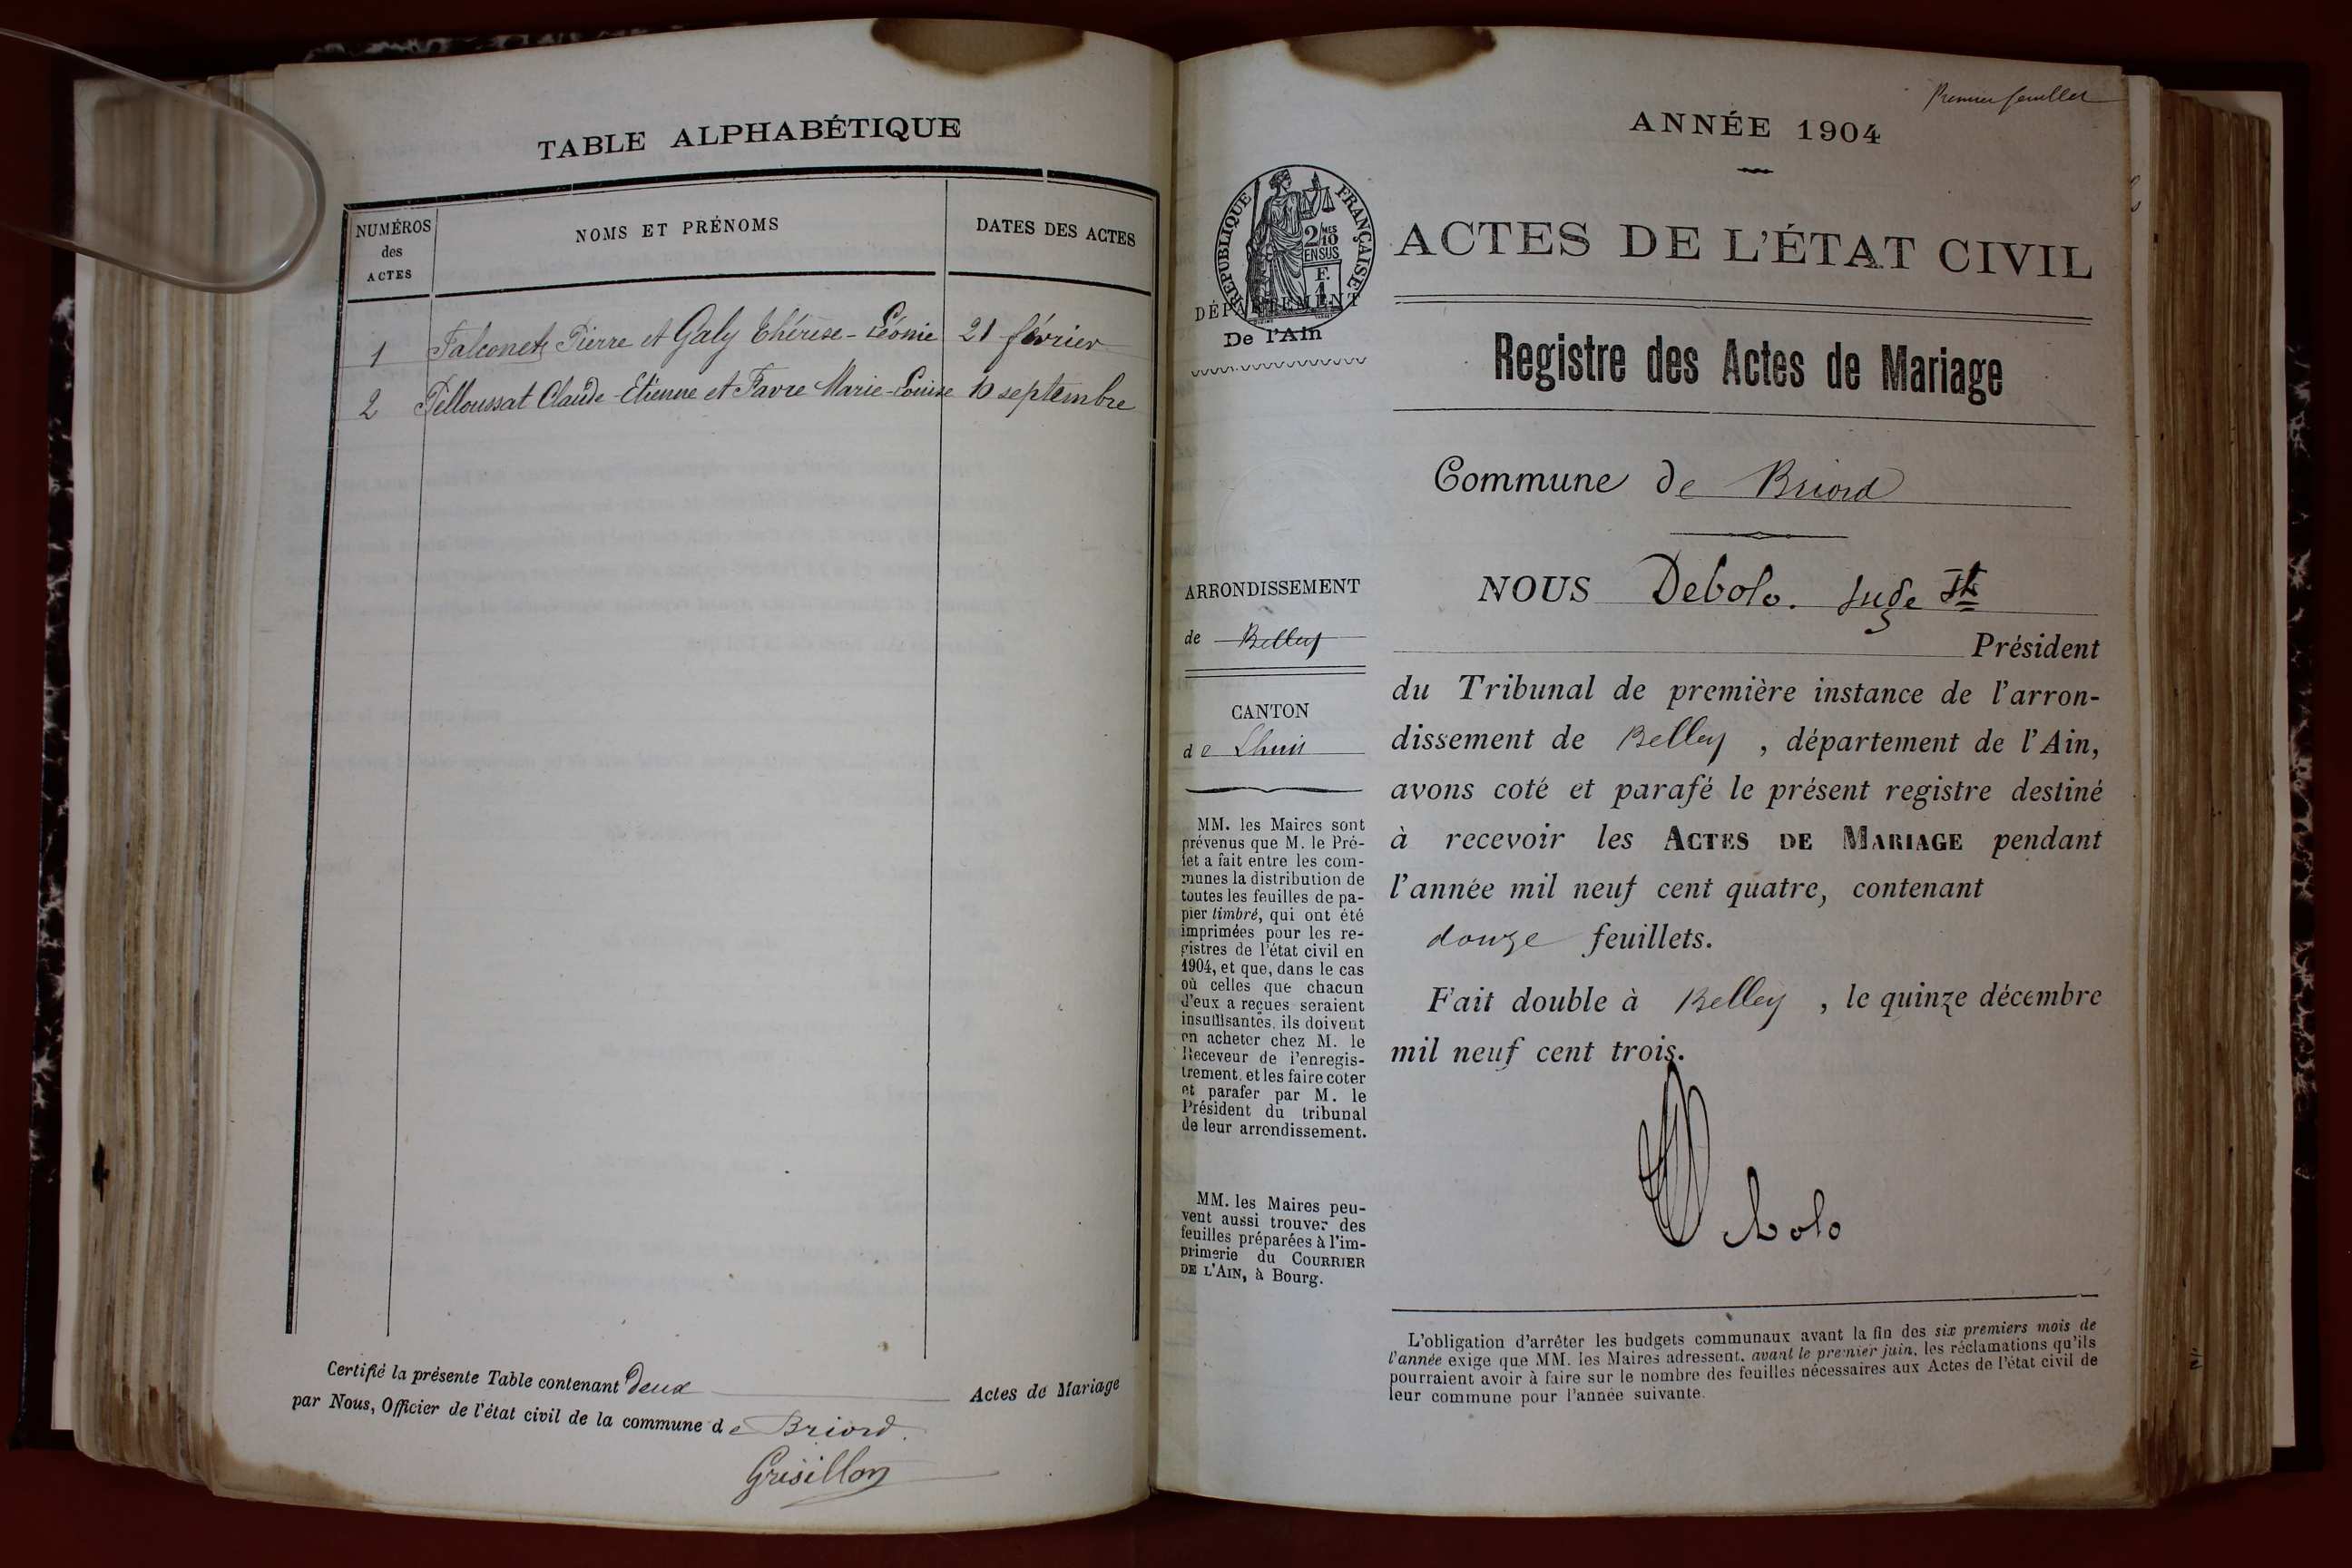 TABLE ALPHABÉTIQUE
NUMÉROS
des
ACTES
NOMS ET PRÉNOMS
DATES DES ACTES
1 Falconet Pierre et Galy Thérèse-Léonie 21 février
2 Pelloussat Claude-Etienne et Favre Marie-Louise 10 septembre
Certifié la présente Table contenant deux Actes de Mariage
par Nous, Officier de l'état civil de la commune de Briord.
Grisillon
Premier feuillet
ANNÉE 1904
RÉPUBLIQUE FRANÇAISE
2/10MES
EN SUS
F.
1
DÉPARTEMENT
De l'Ain
ACTES DE L'ÉTAT CIVIL
Registre des Actes de Mariage
Commune de Briord
ARRONDISSEMENT
de Belley
CANTON
de Lhuis
MM. les Maires sont
prévenus que M. le Pré-
fet a fait entre les com-
munes la distribution de
toutes les feuilles de pa-
pier timbré, qui ont été
imprimées pour les re-
gistres de l'état civil en
1904, et que, dans le cas
où celles que chacun
d'eux a reçues seraient
insuffisantes, ils doivent
en acheter chez M. le
Receveur de l'enregis-
trement, et les faire coter
et parafer par M. le
Président du tribunal
de leur arrondissement.
MM. les Maires peu-
vent aussi trouver des
feuilles préparées à l'im-
primerie du COURRIER
DE L'AIN, à Bourg.
NOUS Debolo. Juge
Président
du Tribunal de première instance de l'arron-
dissement de Belley , département de l'Ain,
avons coté et parafé le présent registre destiné
à recevoir les ACTES DE MARIAGE pendant
l'année mil neuf cent quatre, contenant
douze feuillets.
Fait double à Belley , le quinze décembre
mil neuf cent trois.
Debolo
L'obligation d'arrêter les budgets communaux avant la fin des six premiers mois de
l'année exige que MM. les Maires adressent, avant le premier juin, les réclamations qu'ils
pourraient avoir à faire sur le nombre des feuilles nécessaires aux Actes de l'état civil de
leur commune pour l'année suivante.